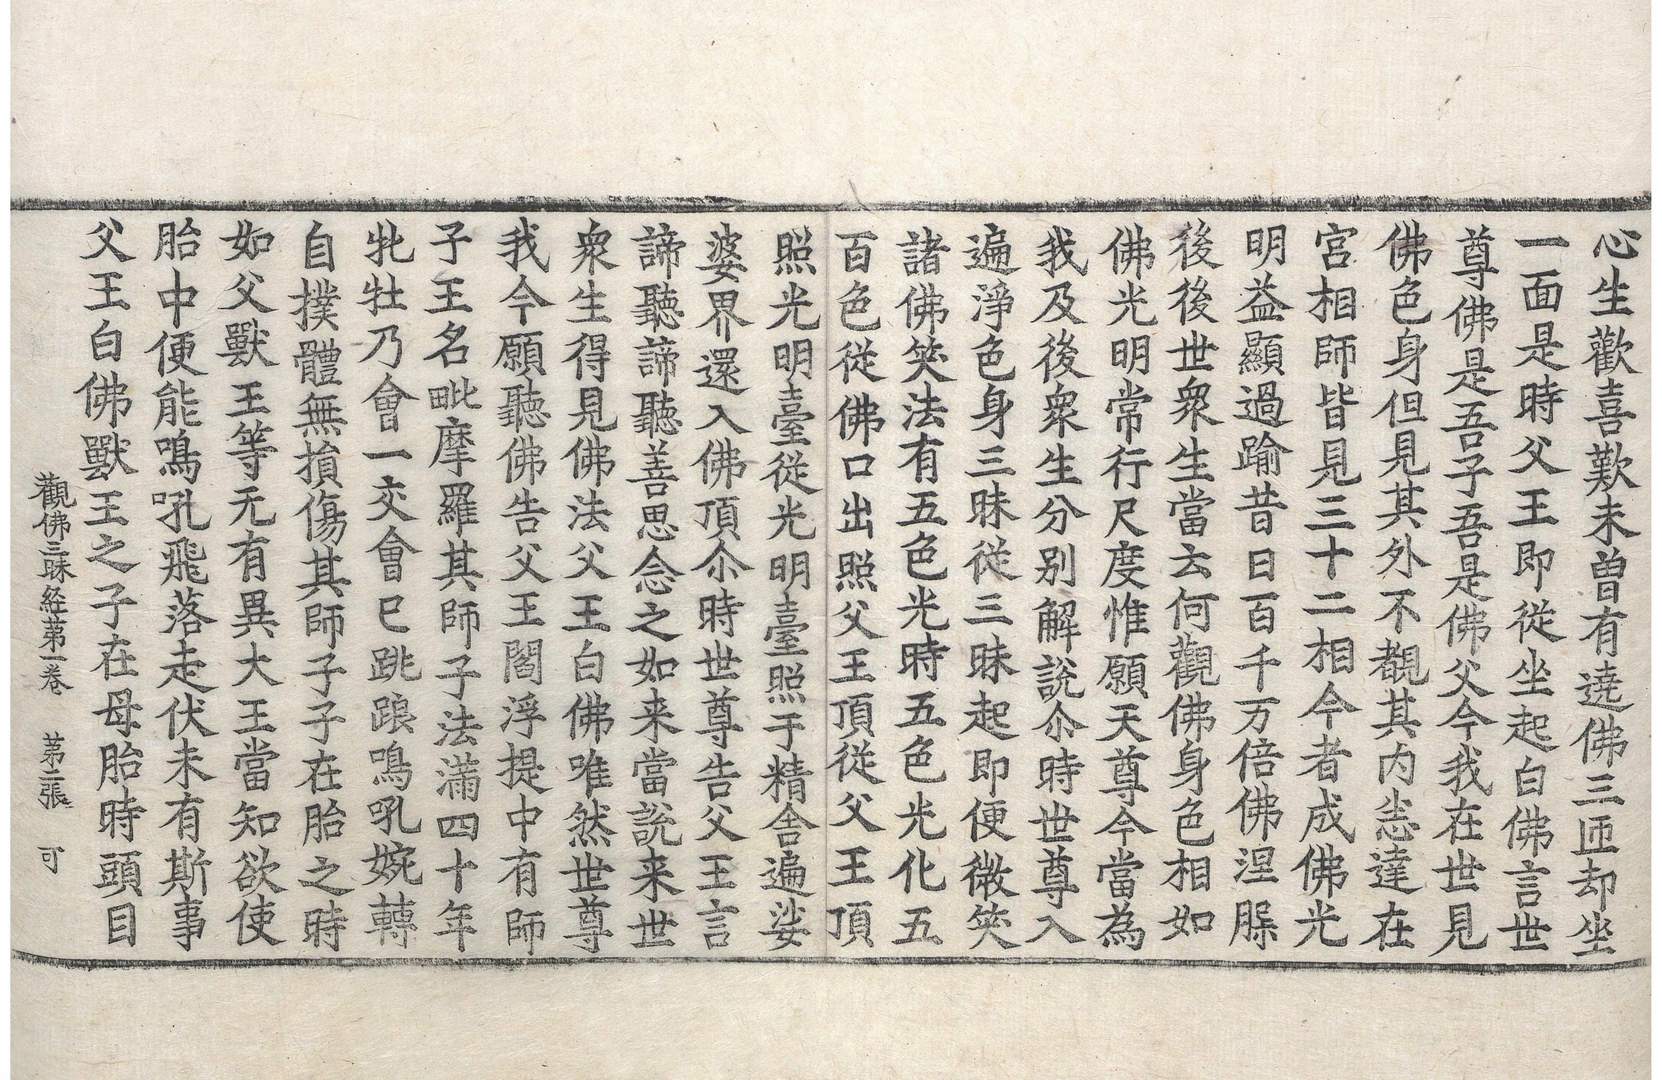 心生歡喜歎未曽有遶佛三匝却坐
一面是時父王即從坐起白佛言世
尊佛是吾子吾是佛父今我在世見
佛色身但見其外不覩其内悉達在
宮相師皆見三十二相今者成佛光
明益顯過踰昔日百千万倍佛涅槃
後後世衆生當云何觀佛身色相如
佛光明常行尺度惟願天尊今當為
我及後衆生分別解説尒時世尊入
遍淨色身三昧従三昧起即便微笑
諸佛笑法有五色光時五色光化五
百色従佛口出照父王頂従父王頂
照光明臺従光明臺照于精舎遍娑
婆界還入佛頂尒時世尊告父王言
諦聽諦聽善思念之如来當説来世
衆生得見佛法父王白佛唯然世尊
我今願聽佛告父王閻浮提中有師
子王名毗摩羅其師子法滿四十年
牝牡乃會一交會已跳踉鳴吼婉轉
自撲體無損傷其師子子在胎之時
如父獸王等无有異大王當知欲使
胎中便能鳴吼飛落走伏未有斯事
父王白佛獸王之子在母胎時頭目
觀佛三昧経苐一卷 苐二張 可